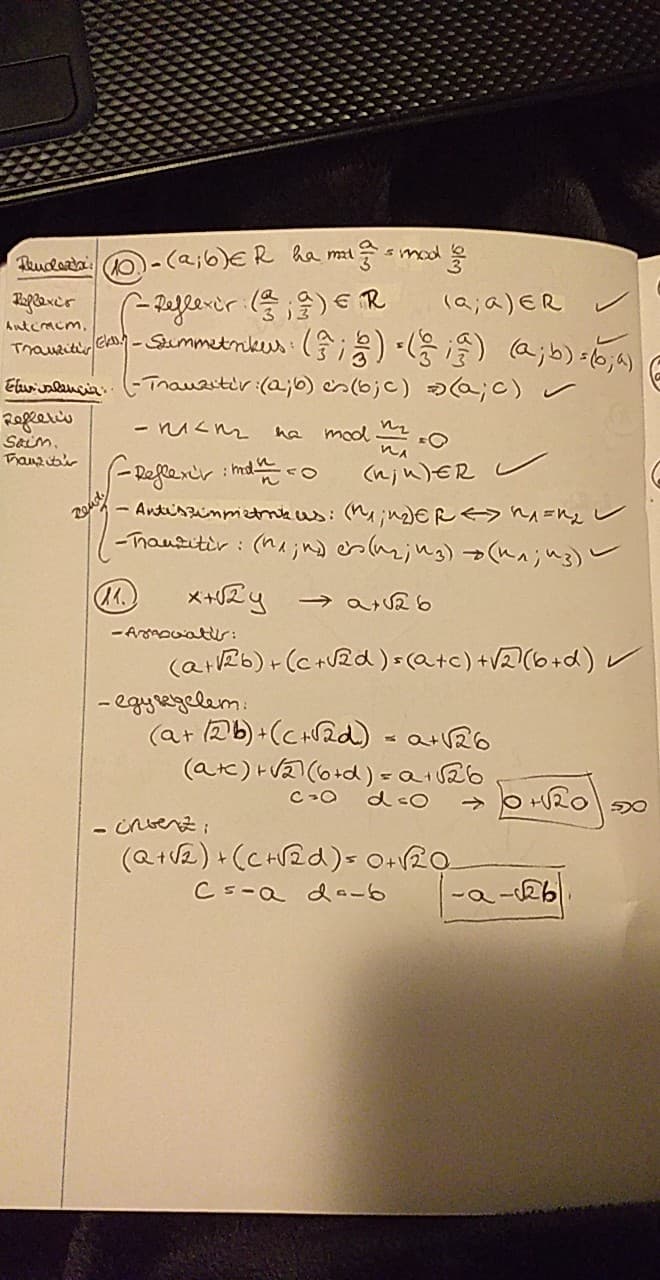 Rendezési:
Reflexív
Antiszim.
Tranzitív
Ekvivalencia:
Reflexív
Szim.
Tranzitív
10. - (a;b)∈R ha mod a/3 = mod b/3
Ekv. - Reflexív: (a/3 ; a/3) ∈ R (a;a)∈R ✓
- Szimmetrikus: (a/3 ; b/3) = (b/3 ; a/3) (a;b)=(b;a) ✓
- Tranzitív: (a;b) és (b;c) ⇒ (a;c) ✓
- n1<n2 ha mod n2/n1 = 0
rend. - Reflexív: mod n/n = 0 (n;n)∈R ✓
- Antiszimmetrikus: (n1;n2)∈R ↔ n1=n2 ✓
- Tranzitív: (n1;n2) és (n2;n3) → (n1;n3) ✓
11. x+√2y → a+√2b
- Asszociatív:
(a+√2b)+(c+√2d)=(a+c)+√2(b+d) ✓
- egységelem:
(a+√2b)+(c+√2d) = a+√2b
(a+c)+√2(b+d)=a+√2b
c=0 d=0 → 0+√20 ⇒0
- inverz:
(a+√2)+(c+√2d)=0+√20
c=-a d=-b -a-√2b